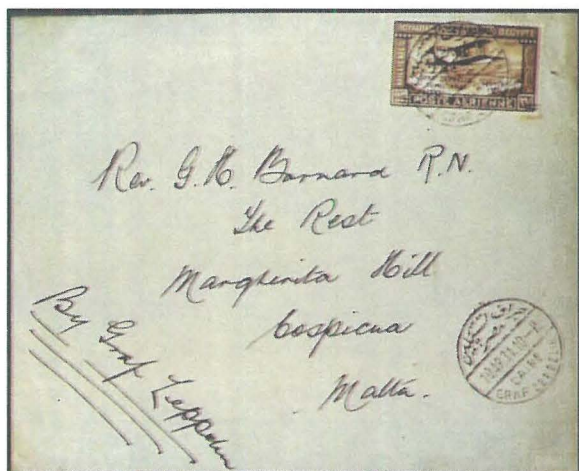 POSTE AERIENNE
Rev. G. H. Barnard R.N.
The Rest
Margherita Hill
Cospicua
Malta.
By Graf Zeppelin
GRAF